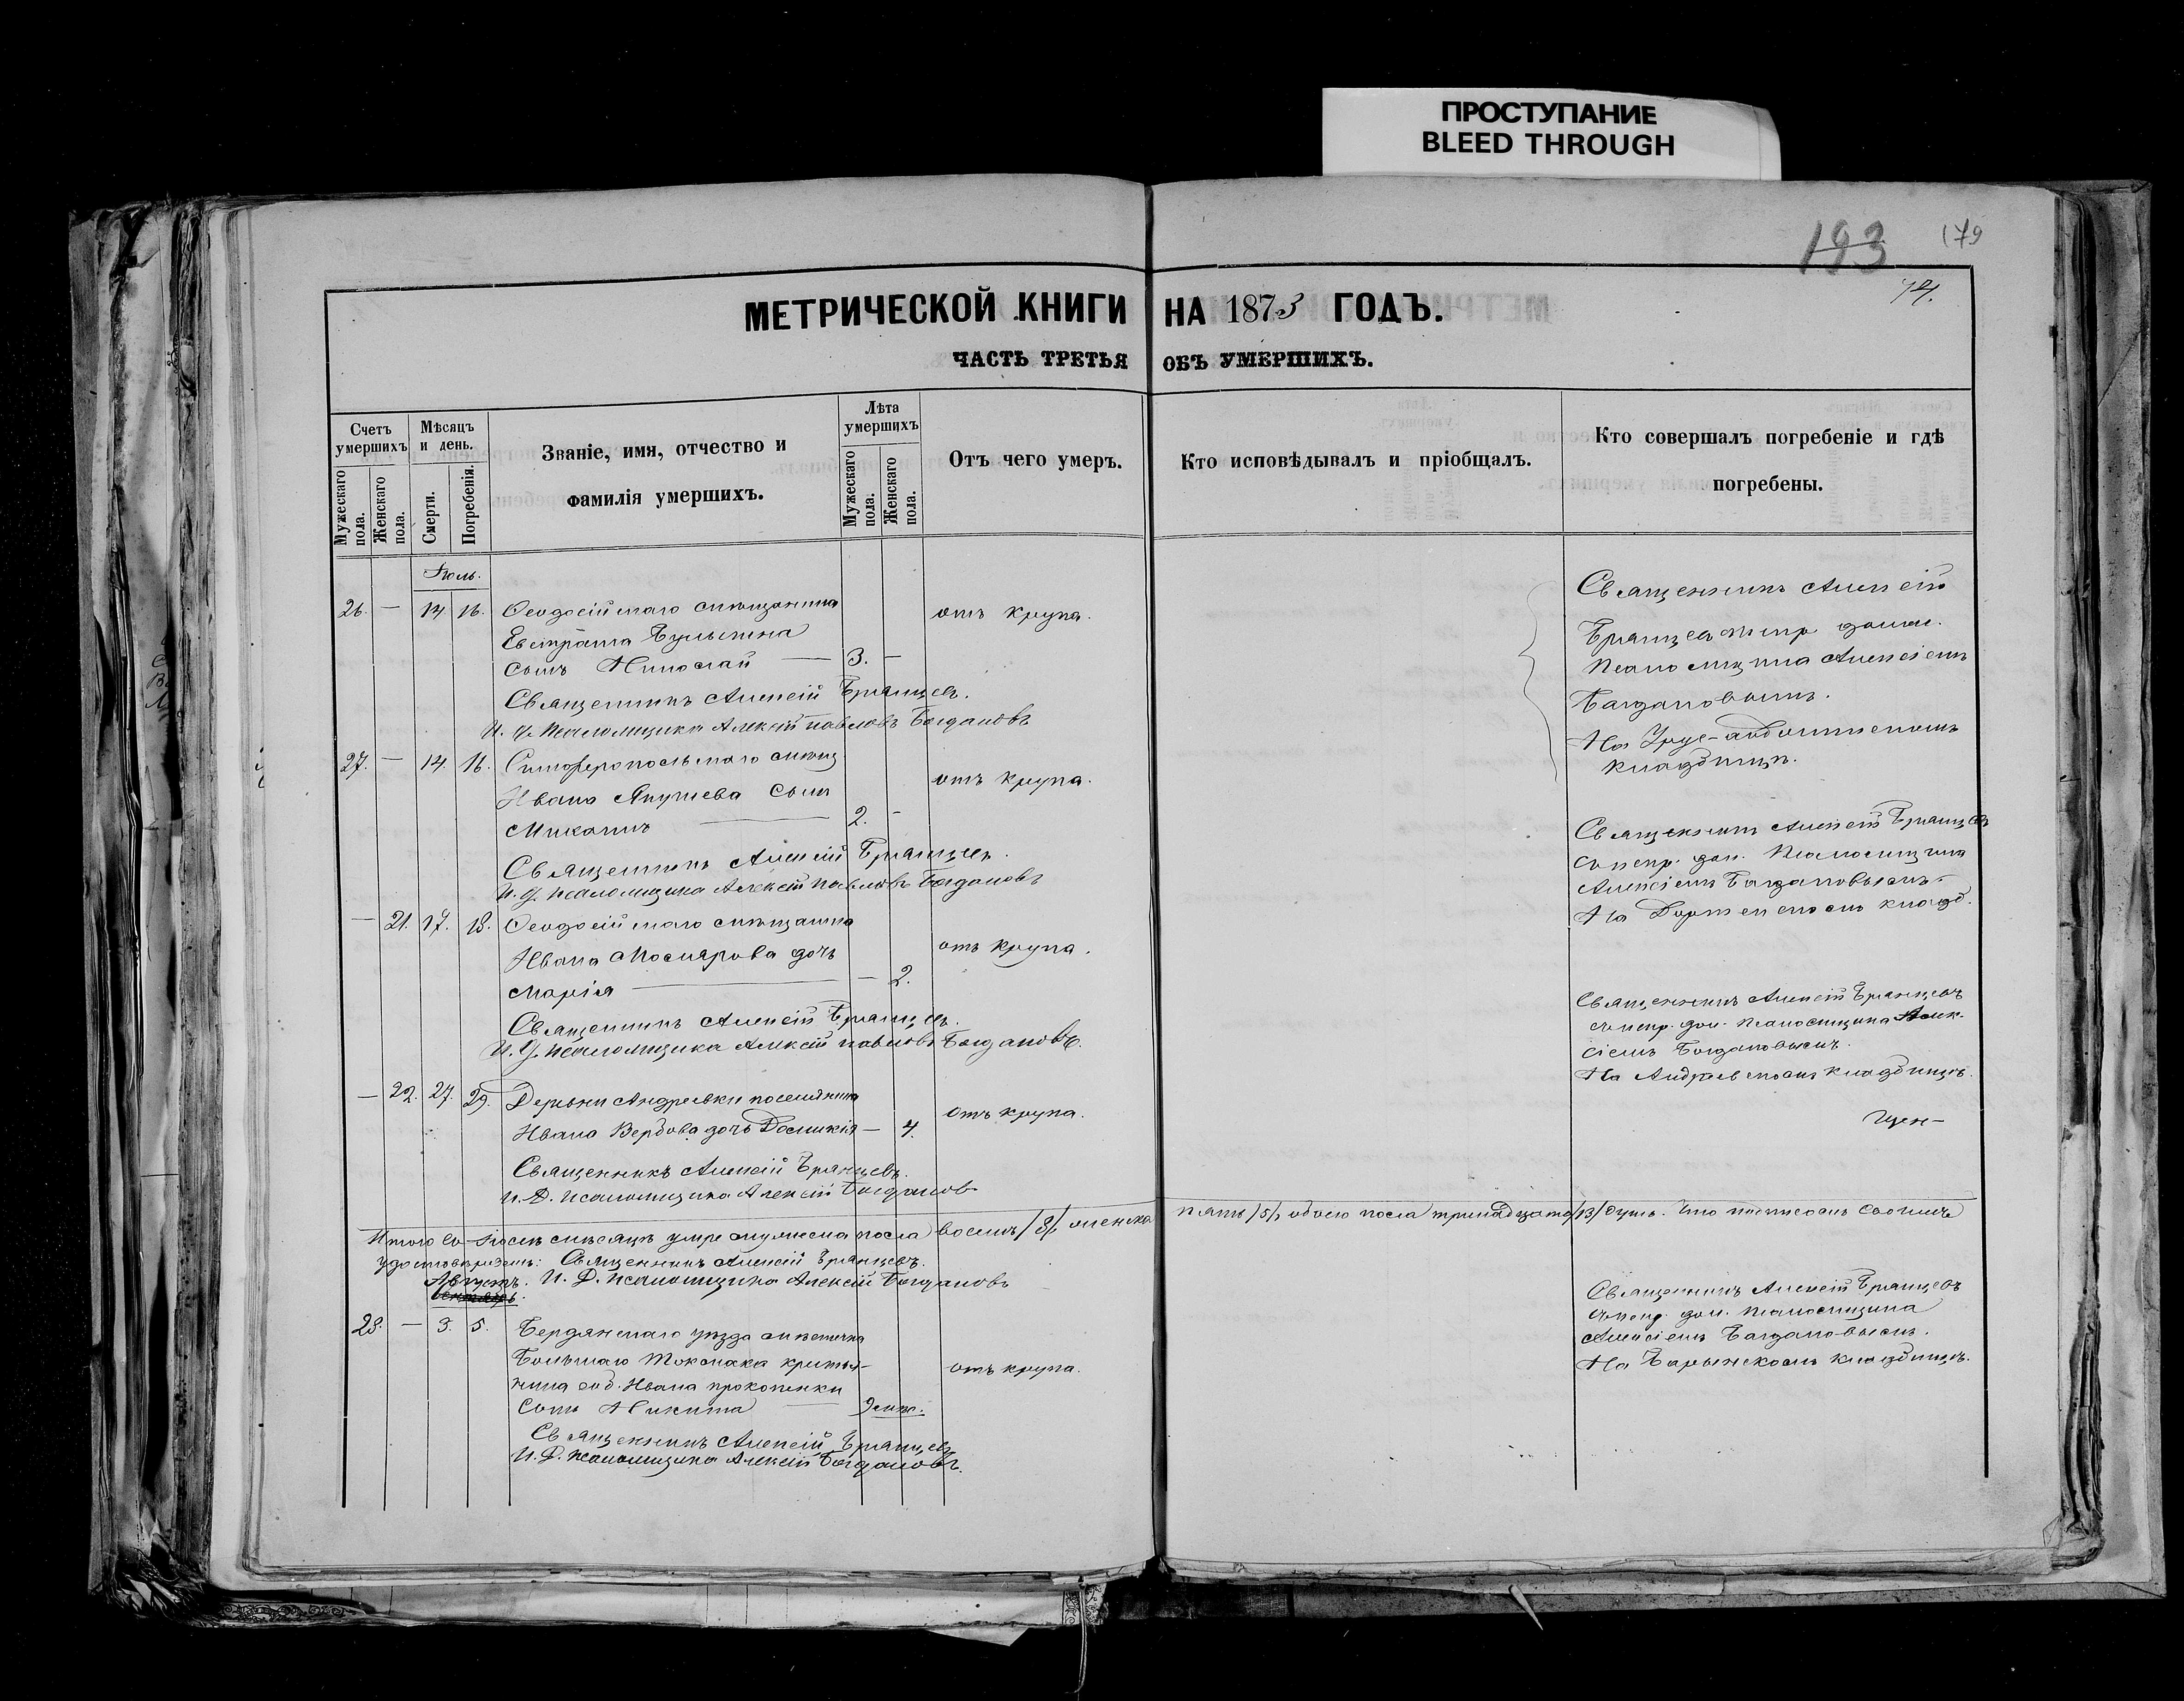 ПРОСТУПАНИЕ
BLEED THROUGH
193
179
74.
МЕТРИЧЕСКОЙ КНИГИ НА 1873 ГОДЪ.
ЧАСТЬ ТРЕТЬЯ ОБЪ УМЕРШИХЪ.
Счетъ умершихъ
Мужескаго пола.
Женскаго пола.
Мѣсяцъ и день.
Смерти.
Погребенія.
Званіе, имя, отчество и
фамилія умершихъ.
Лѣта умершихъ
Мужескаго пола.
Женскаго пола.
Отъ чего умеръ.
Кто исповѣдывалъ и пріобщалъ.
Кто совершалъ погребеніе и гдѣ
погребены.
Іюль.
26. — 14. 16. Ѳеодосійскаго мѣщанина
Евстрата
сынъ Николай — 3. —
отъ крупа.
Священникъ Алексій Брянцевъ.
И. д. псаломщика Алексій Павловъ Богдановъ
Священникъ Алексій
Брянцевъ
псаломщика Алексіемъ
Богдановымъ.
На
кладбищѣ.
27. — 14. 16. Симферопольскаго мѣщ.
Ивана сынъ
Михаилъ — 2. —
отъ крупа.
Священникъ Алексій Брянцевъ.
И. д. псаломщика Алексій Павловъ Богдановъ
Священникъ Алексій Брянцевъ
съ испр. дол. псаломщика
Алексіемъ Богдановымъ.
На кладб.
— 21. 17. 18. Ѳеодосійскаго мѣщанина
Ивана дочь
Марія — — 2.
отъ крупа.
Священникъ Алексій Брянцевъ.
И. д. псаломщика Алексій Павловъ Богдановъ.
Священникъ Алексій Брянцевъ
съ испр. дол. псаломщика Алек-
сіемъ Богдановымъ.
На Андреевскомъ кладбищѣ.
— 22. 27. 29. Деревни Андреевки поселянина
Ивана Вербова дочь Домникія — 4.
отъ крупа.
Священникъ Алексій Брянцевъ.
И. Д. псаломщика Алексій Богдановъ
Итого въ Іюлѣ мѣсяцѣ умре мужеска пола восемь /8/, женска пять /5/, обоего пола тринадцать /13/ душъ. Что подписомъ своимъ
удостовѣряемъ: Священникъ Алексій Брянцевъ.
И. Д. псаломщика Алексій Богдановъ
Августъ.
23. — 3. 5. Бердянскаго уѣзда мѣстечка
Большаго Токмака крестья-
нина Ивана Прокопенки
сынъ Никита — 9 мѣс.
отъ крупа.
Священникъ Алексій Брянцевъ
И. Д. псаломщика Алексій Богдановъ.
Священникъ Алексій Брянцевъ
съ испр. дол. псаломщика
Алексіемъ Богдановымъ.
На кладбищѣ.